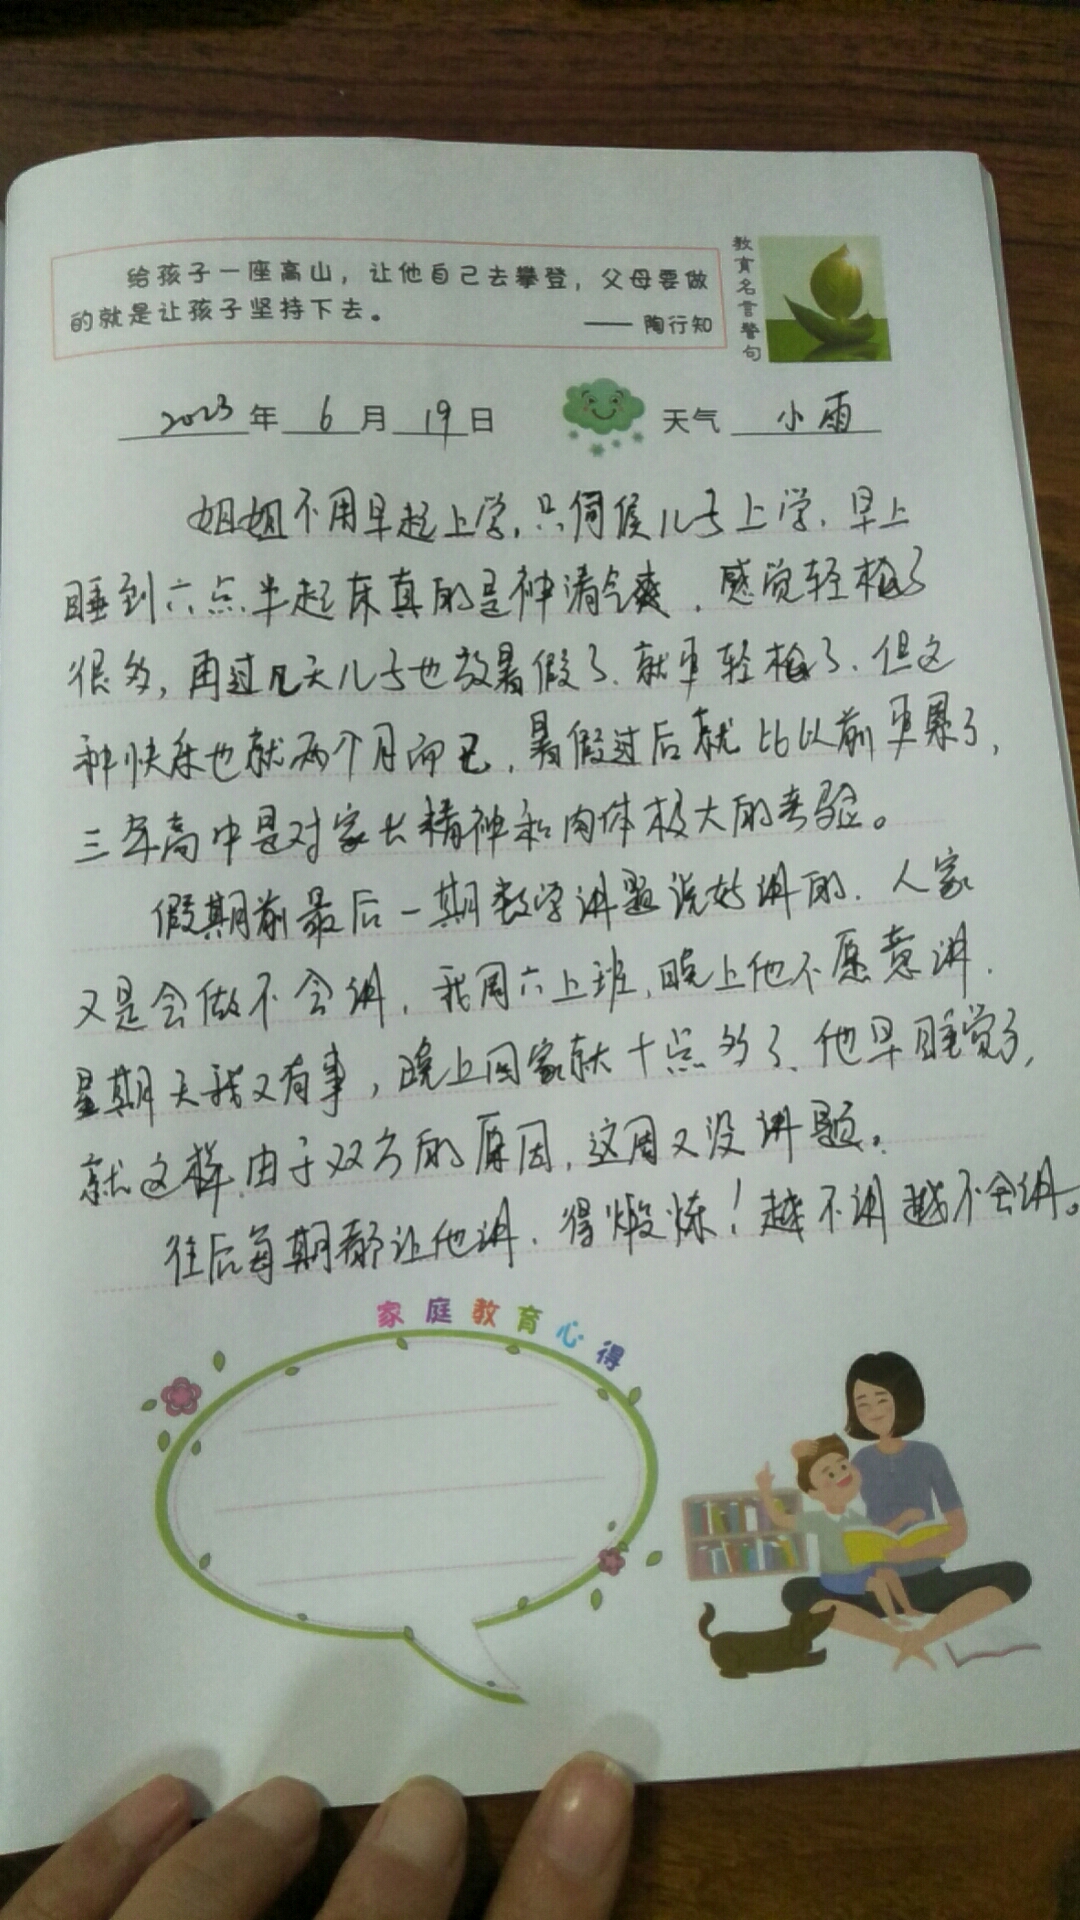 给孩子一座高山，让他自己去攀登，父母要做
的就是让孩子坚持下去。
—— 陶行知
教育名言警句
2023年6月19日
天气 小雨
姐姐不用早起上学，只伺候儿子上学，早上
睡到六点半起床真的是神清气爽，感觉轻松了
很多，再过几天儿子也放暑假了，就更轻松了，但这
种快乐也就两个月而已，暑假过后就比以前更累了，
三年高中是对家长精神和肉体极大的考验。
假期前最后一期数学讲题说好讲的，人家
又是会做不会讲，我周六上班，晚上他不愿意讲，
星期天我又有事，晚上回家就十点多了，他早睡觉了，
就这样，由于双方的原因，这周又没讲题。
往后每期都让他讲，得煅炼！越不讲越不会讲。
家庭教育心得